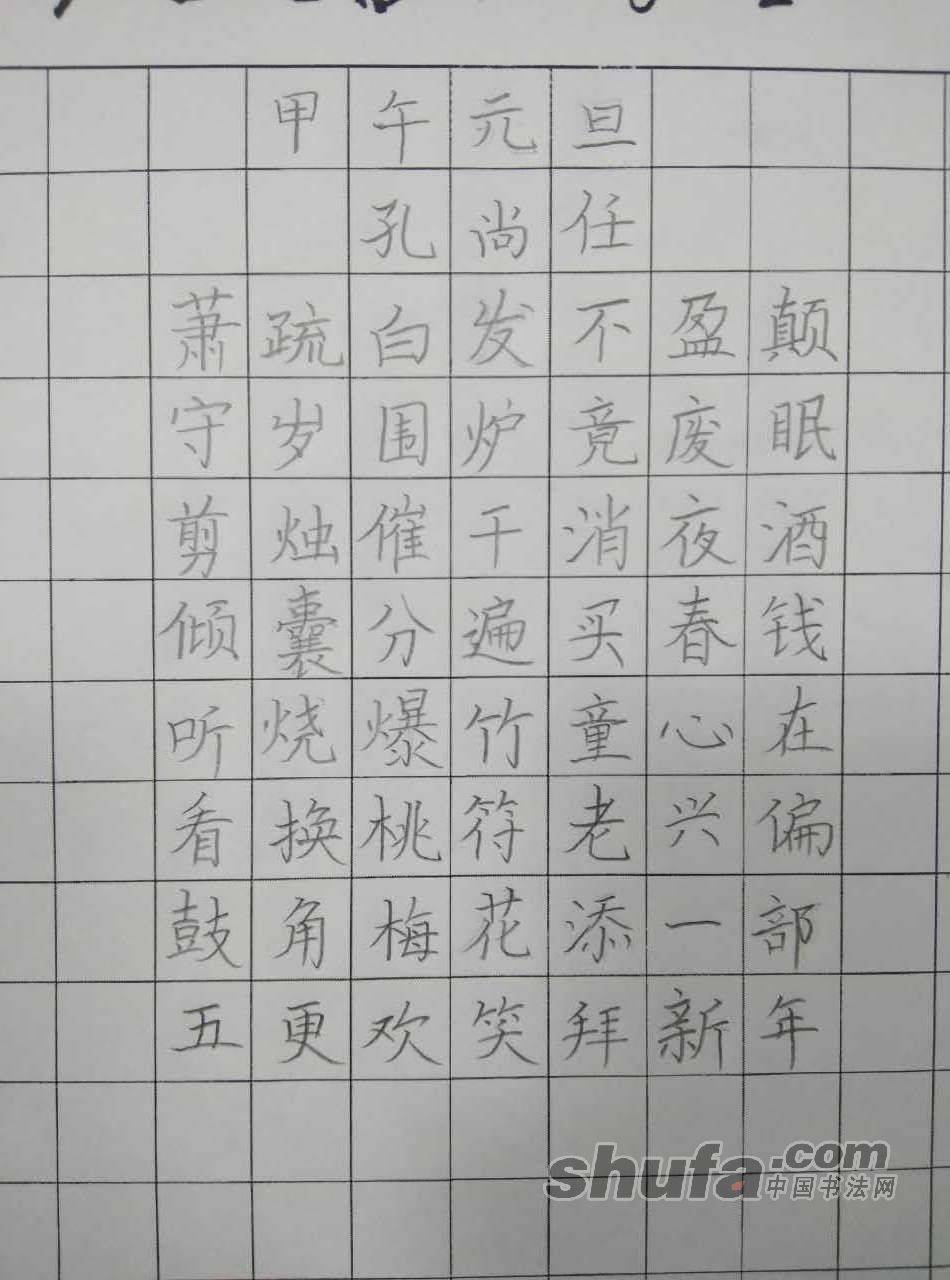 甲午元旦
孔尚任
萧疏白发不盈颠
守岁围炉竟废眠
剪烛催干消夜酒
倾囊分遍买春钱
听烧爆竹童心在
看换桃符老兴偏
鼓角梅花添一部
五更欢笑拜新年
shufa.com
中国书法网